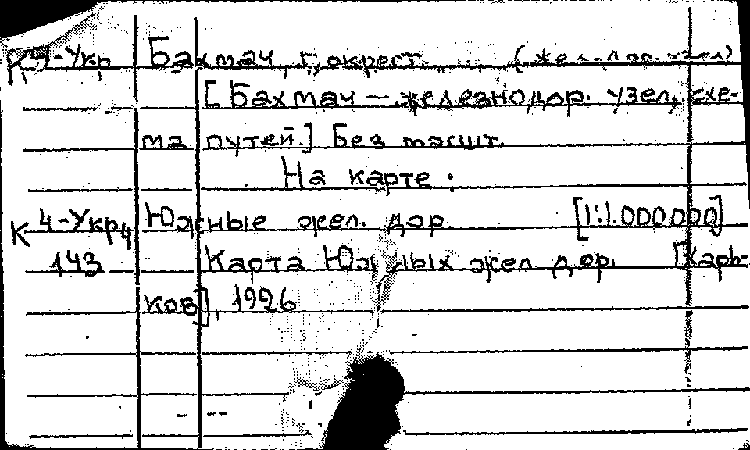 К 4-Укр Бахмач, г. окрест. ... (жел.-дор. узел)
[Бахмач — железнодор. узел, схе-
ма путей.] Без масшт.
На карте:
К 4-Укр4 Южные жел. дор. [1:1.000.000]
143 Карта Южных жел. дор. [Харь-
ков], 1926